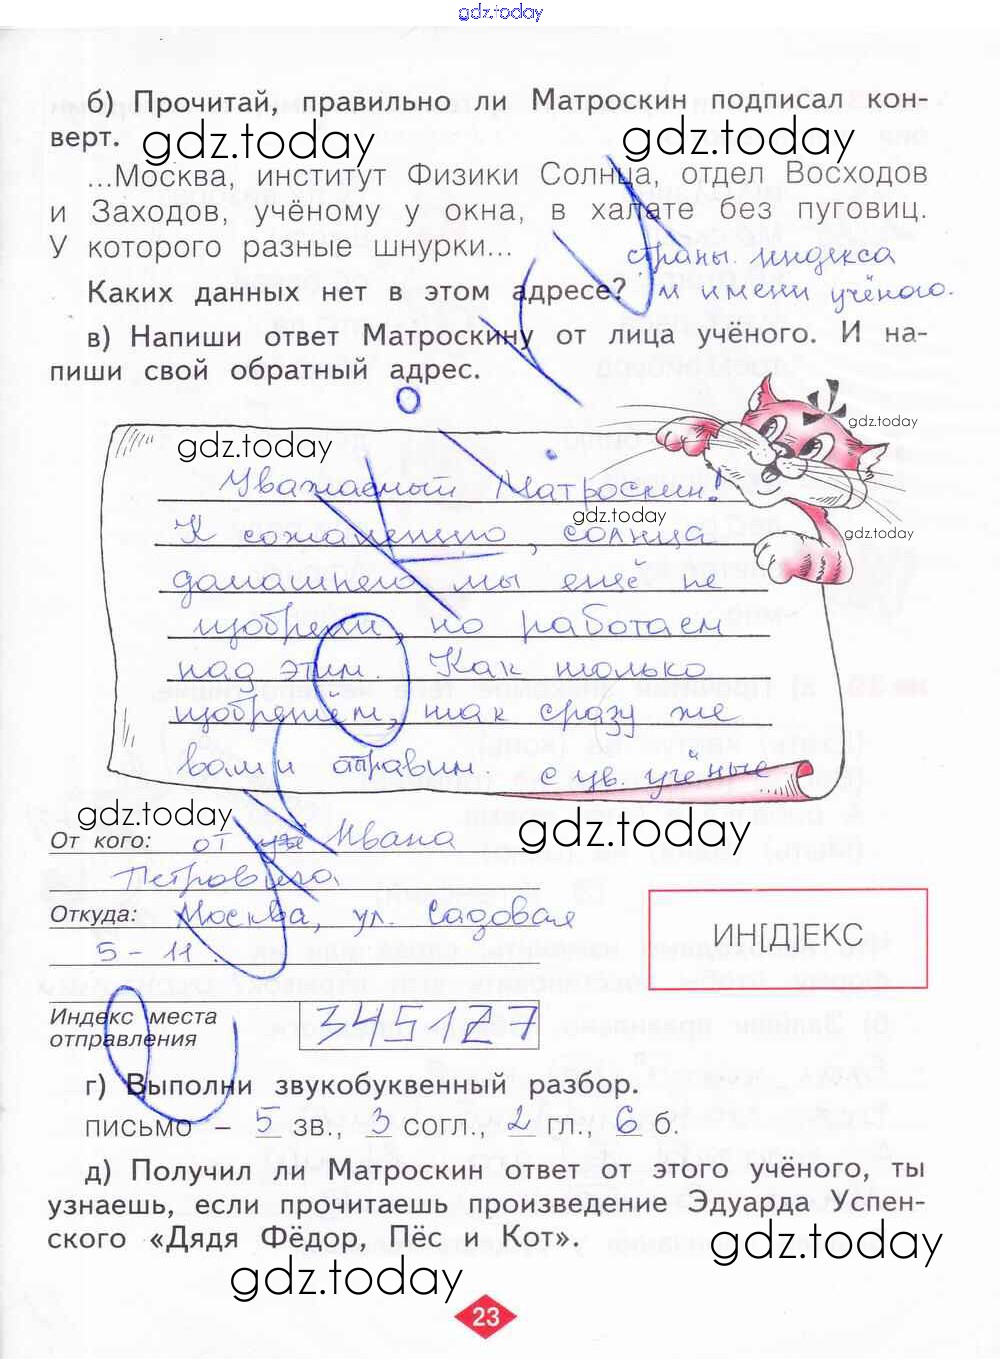 gdz.today
б) Прочитай, правильно ли Матроскин подписал кон-
верт.
gdz.today gdz.today
...Москва, институт Физики Солнца, отдел Восходов
и Заходов, учёному у окна, в халате без пуговиц.
У которого разные шнурки... страны. индекса
Каких данных нет в этом адресе? и имени учёного.
в) Напиши ответ Матроскину от лица учёного. И на-
пиши свой обратный адрес.
gdz.today
gdz.today
Уважаемый Матроскин!
gdz.today
К сожалению, солнца
gdz.today
домашнего мы ещё не
изобрели, но работаем
над этим. Как только
изобретем, так сразу же
вам и отправим. с ув. учёные
gdz.today
gdz.today
От кого: от Ивана
Петровича
Откуда: Москва, ул. Садовая
5 - 11.
ИН[Д]ЕКС
Индекс места
отправления
345127
г) Выполни звукобуквенный разбор.
письмо – 5 зв., 3 согл., 2 гл., 6 б.
д) Получил ли Матроскин ответ от этого учёного, ты
узнаешь, если прочитаешь произведение Эдуарда Успен-
ского «Дядя Фёдор, Пёс и Кот».
gdz.today
gdz.today
23